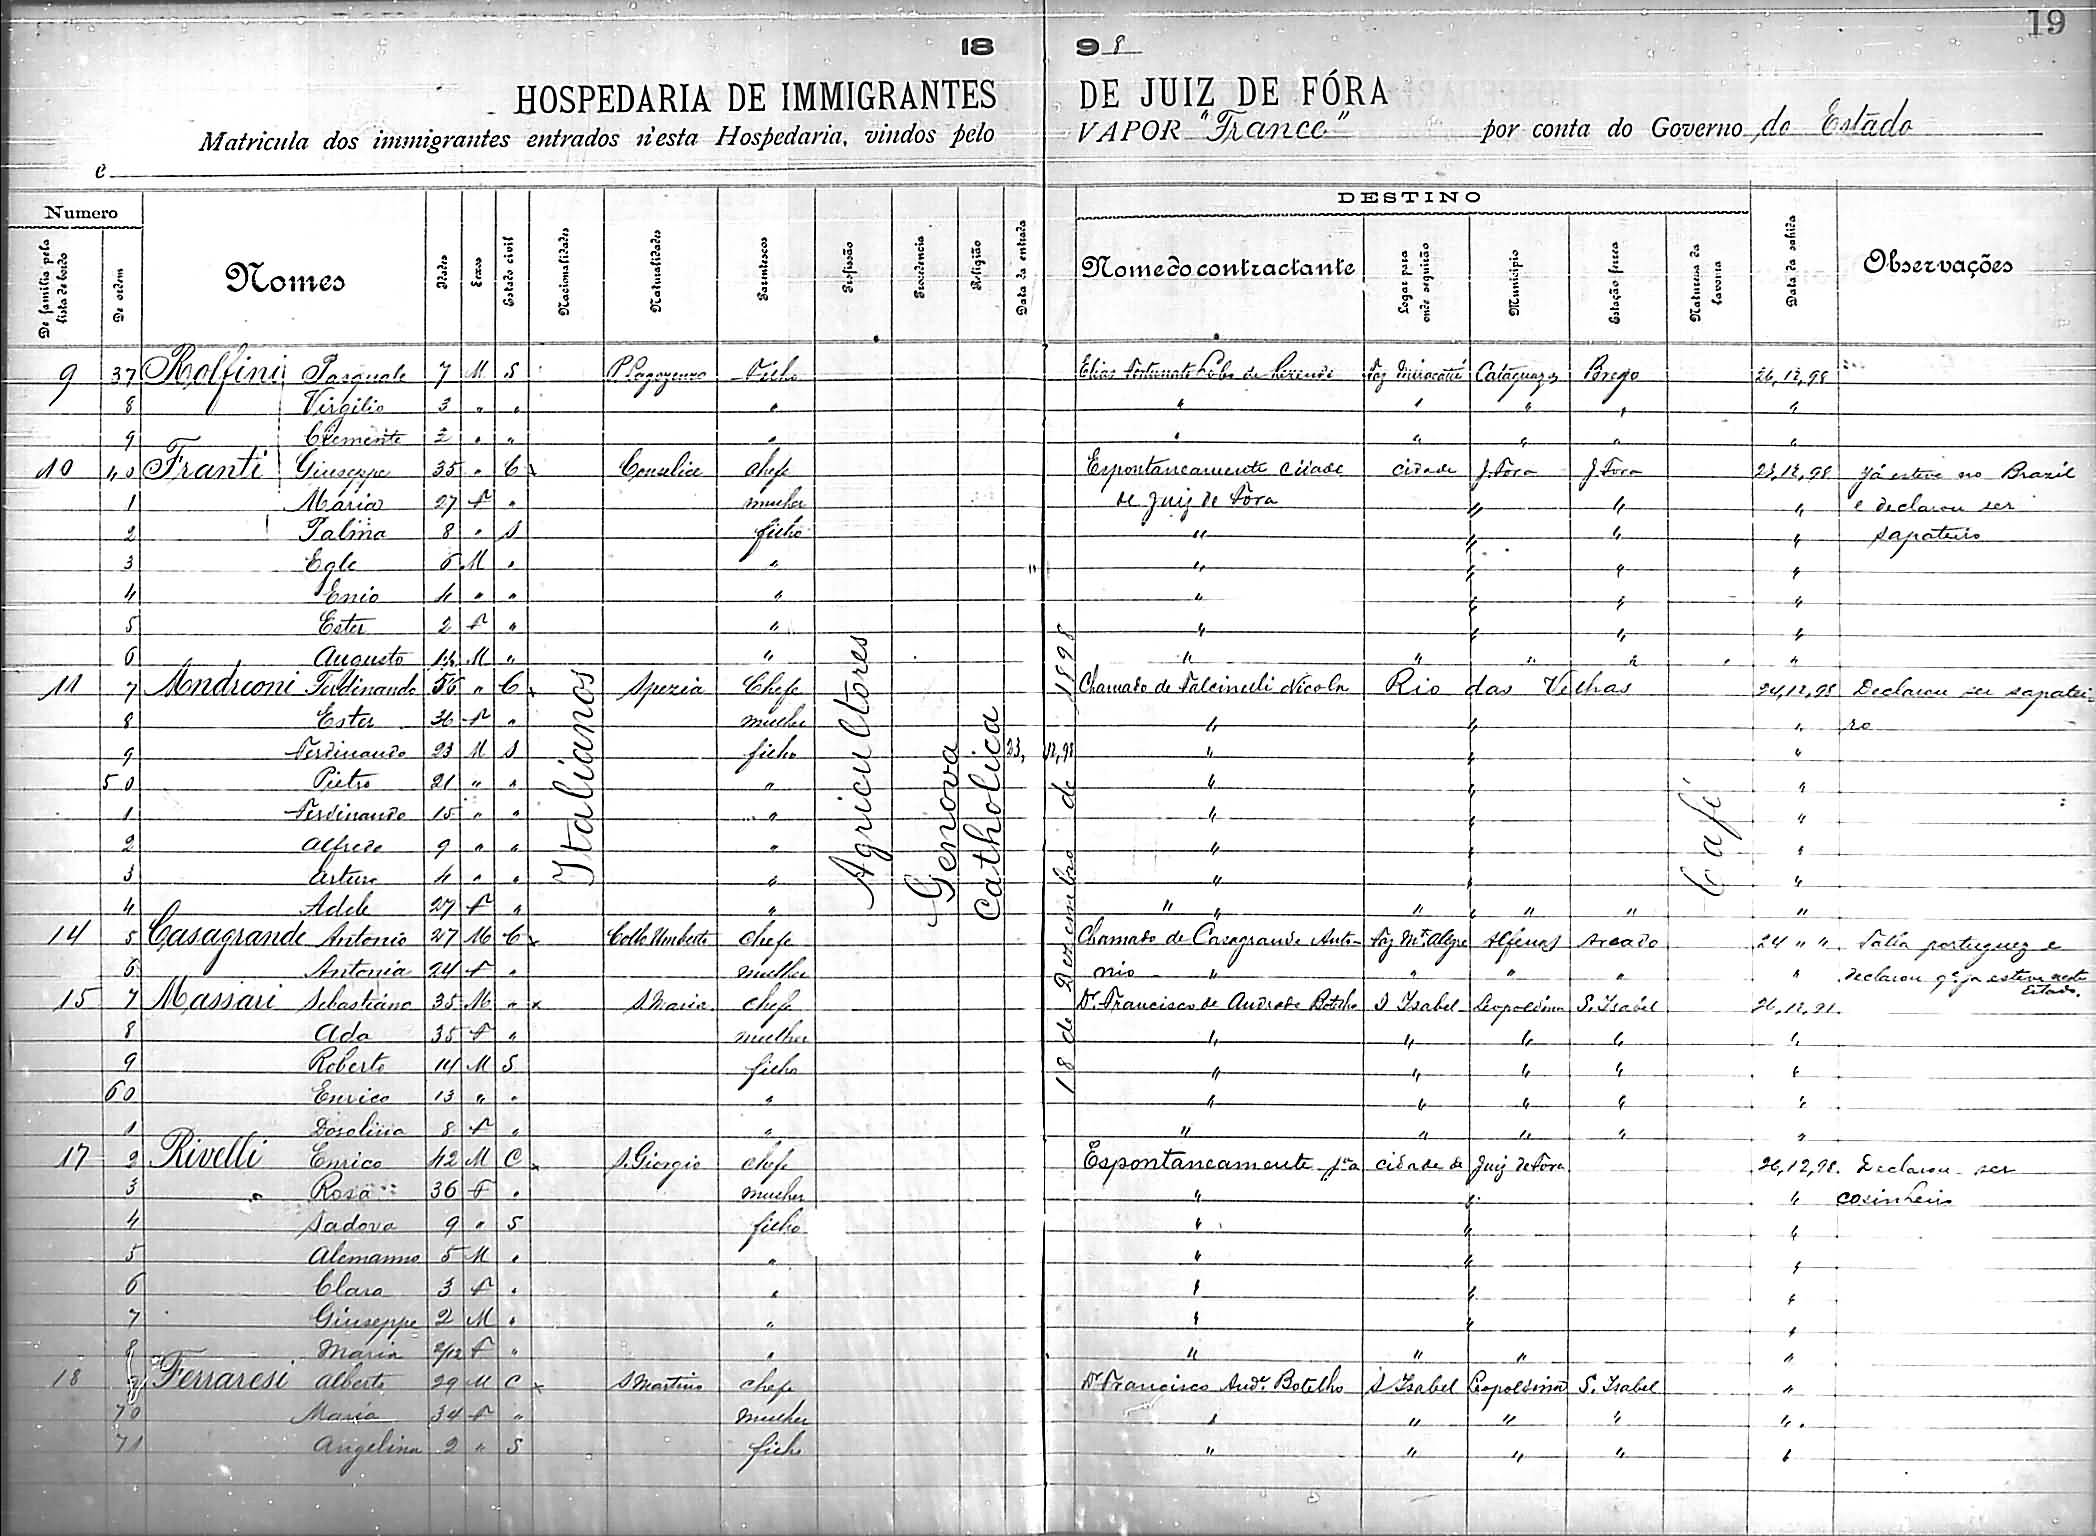 19
18 98
HOSPEDARIA DE IMMIGRANTES DE JUIZ DE FÓRA
Matricula dos immigrantes entrados n'esta Hospedaria, vindos pelo VAPOR "France" por conta do Governo do Estado
e
Numero DESTINO
De familia pela lista de bordo De ordem Nomes Idades Sexos Estado civil Nacionalidades Naturalidades Parentescos Profissão Procedencia Religião Data da entrada Nome do contractante Logar para onde seguirão Municipio Estação ferrea Natureza da lavoura Data da sahida Observações
9 37 Rolfini Pasquale 7 M S Filho Elias Fortunato Faz Cataguazes Brejo 26,12,98
8 Virgilio 3 " " " " " " " "
9 Clemente 2 " " " " " " " "
10 40 Franti Giuseppe 35 " C Conselice Chefe Espontaneamente cidade cidade J. Fora J. Fora 23,12,98 Já esteve no Brazil
1 Maria 27 F " mulher de Juiz de Fora " " " e declarou ser
2 Palma 8 " S filho " " " " sapateiro
3 Egle 6 M " " " " " " "
4 Enio 4 " " " " " " "
5 Ester 2 F " " " " " "
6 Augusto M " " " " " " "
11 7 Andreoni Ferdinando 56 " C Spezia Chefe Chamado de Falcinelli Nicola Rio das Velhas 24,12,98 Declarou ser sapatei-
8 Ester 36 F " mulher " " " ro
9 Ferdinando 23 M S filho 23, 12,98 " " "
50 Pietro 21 " " " " " "
1 Ferdinando 15 " " " " " "
2 Alfredo 9 " " " " " "
3 Arturo 4 " " " " " "
4 Adele 27 F " " " " " " " " "
14 5 Casagrande Antonio 27 M C Collo Umberto Chefe Chamado de Casagrande Anto- Faz Mte Alegre Alfenas Areado 24 " " Falla portuguez e
6 Antonia 24 F " mulher nio " " " " " declarou q' já esteve neste Estado.
15 7 Massari Sebastiano 35 M " S. Maria Chefe Dr. Francisco de Andrade Botelho S Isabel Leopoldina S. Isabel 26,12,98.
8 Ada 35 F " mulher " " " " "
9 Roberto 14 M S filho " " " " "
60 Enrico 13 " " " " " " " "
1 Dosolina 8 F " " " " " " "
17 2 Rivelli Enrico 42 M C S. Giorgio Chefe Espontaneamente pra cidade de Juiz de Fora 26,12,98. Declarou ser
3 Rosa 36 F " mulher " " " cosinheiro
4 Sadova 9 " S filho " " "
5 Alemanno 5 M " " " " "
6 Clara 3 F " " " " "
7 Giuseppe 2 M " " " " "
8 Maria 2/12 F " " " " " "
18 9 Ferraresi Alberto 29 M C S Martino Chefe Dr Francisco Andr. Botelho S Isabel Leopoldina S. Isabel "
70 Maria 34 F " mulher " " " " "
71 Angelina 2 " S filho " " " " "
Italianos
Agricultores
Genova
Catholica
18 de Dezembro de 1898
Café